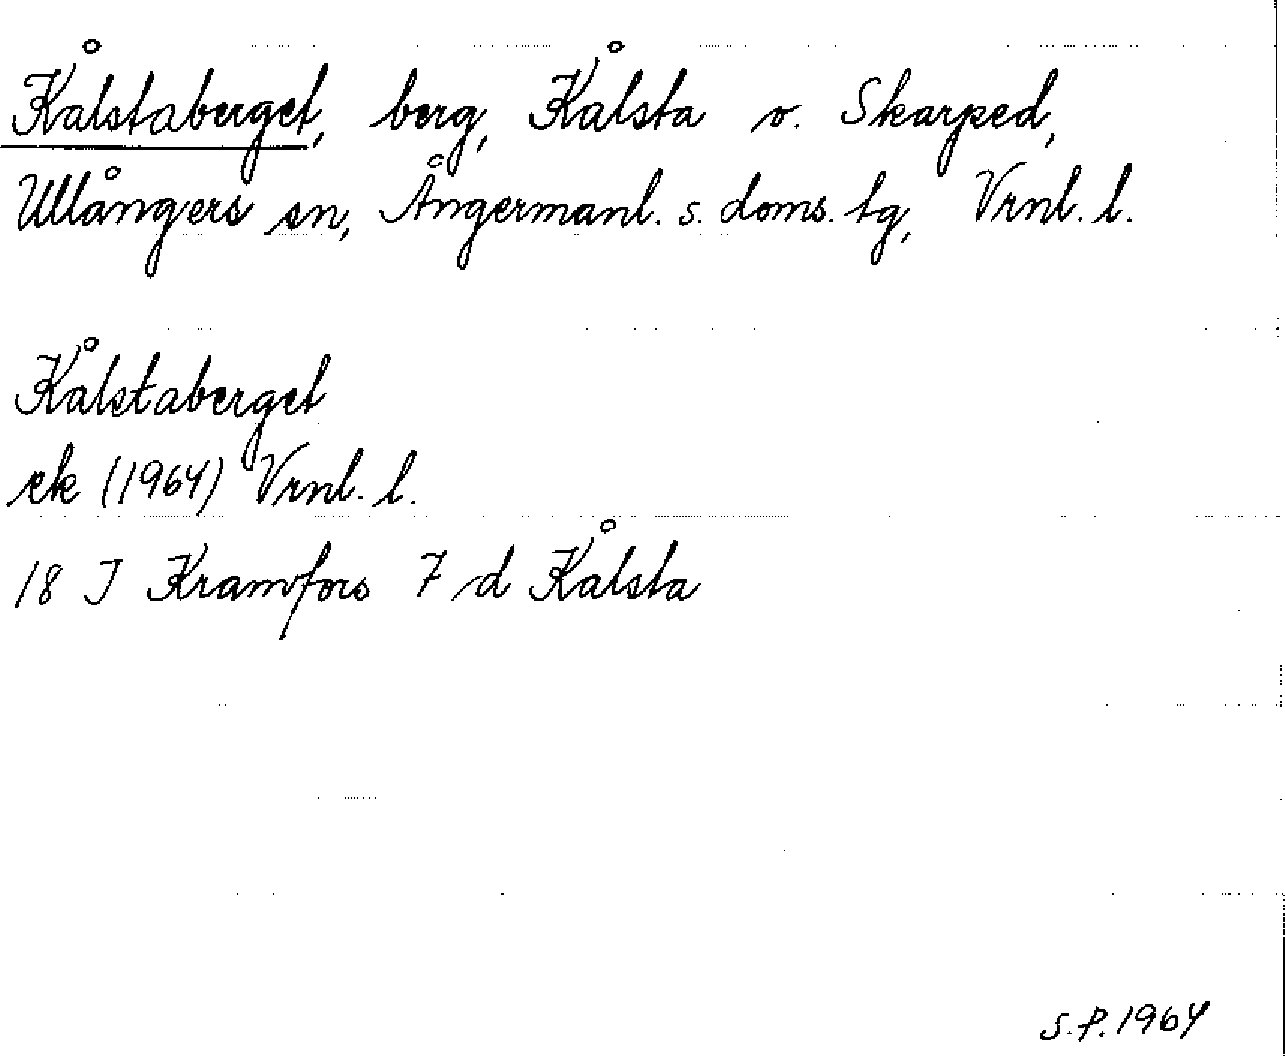 Kålstaberget, berg, Kålsta o. Skarped,
Ullångers sn, Ångermanl. s. doms. tg, Vrnl. l.
Kålstaberget
ek (1964) Vrnl. l.
18 I Kramfors 7 d Kålsta
S.P. 1964